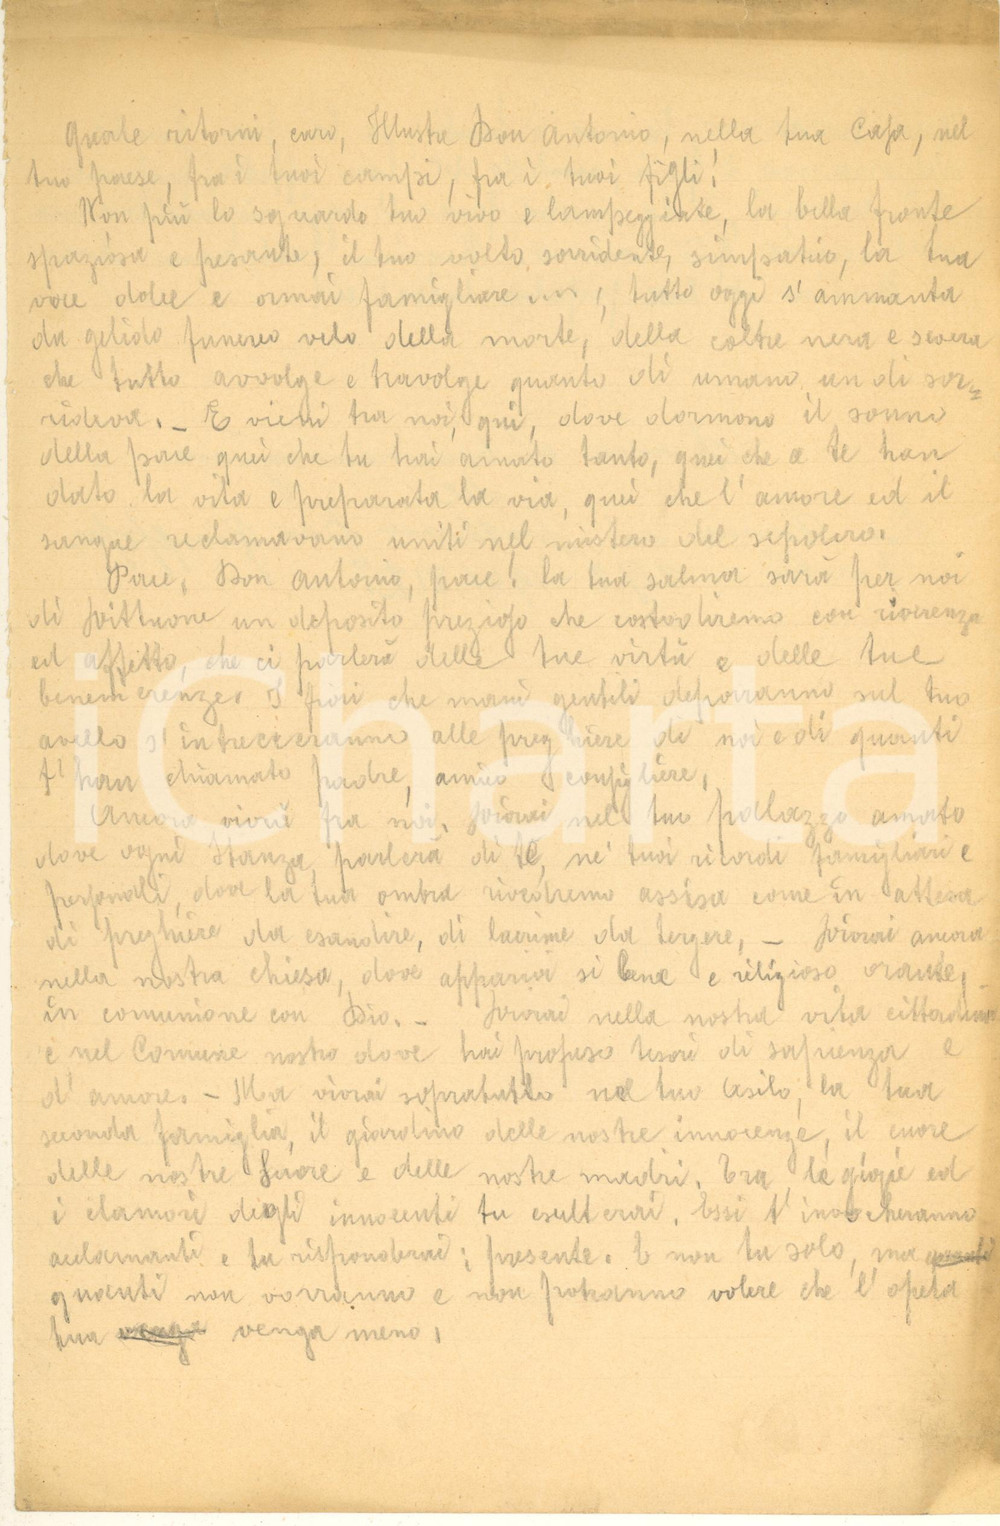 Quale ritorni, caro, Illustre Don Antonio, nella tua Casa, nel
tuo paese, fra i tuoi campi, fra i tuoi figli!
Non più lo sguardo tuo vivo e lampeggiante, la bella fronte
spaziosa e pesante, il tuo volto sorridente, simpatico, la tua
voce dolce e ormai famigliare ...!, tutto oggi s'ammanta
da gelido funereo velo della morte, della coltre nera e severa
che tutto avvolge e travolge quanto di umano un dì sor=
rideva. - E vieni tra noi, qui, dove dormono il sonno
della pace quei che tu hai amato tanto, quei che a te han
dato la vita e preparata la via, quei che l'amore ed il
sangue reclamavano uniti nel mistero del sepolcro.
Pace, Don Antonio, pace! la tua salma sarà per noi
di Vittuone un deposito prezioso che custodiremo con riverenza
ed affetto, che ci parlerà delle tue virtù e delle tue
benemerenze. I fiori che mani gentili deporranno sul tuo
avello s'intrecceranno alle preghiere di noi e di quanti
t'han chiamato padre, amico consigliere.
Ancora vivrai fra noi. Vivrai nel tuo palazzo amato
dove ogni stanza parlerà di te, ne' tuoi ricordi famigliari e
personali, dove la tua ombra rivedremo assisa come in attesa
di preghiere da esaudire, di lacrime da tergere. - Vivrai ancora
nella nostra chiesa, dove apparivi sì bene e religioso orante,
in comunione con Dio. - Vivrai nella nostra vita cittadina
e nel Comune nostro dove hai profuso tesori di sapienza e
d'amore. - Ma vivrai sopratutto nel tuo Asilo, la tua
seconda famiglia, il giardino delle nostre innocenze, il cuore
delle nostre Suore e delle nostre madri. Tra le gioie ed
i clamori degli innocenti tu esulterai. Essi t'invocheranno
acclamanti e tu risponderai: presente. E non tu solo, ma
quanti non vorranno e non potranno volere che l'opera
tua venga meno.
iCharta